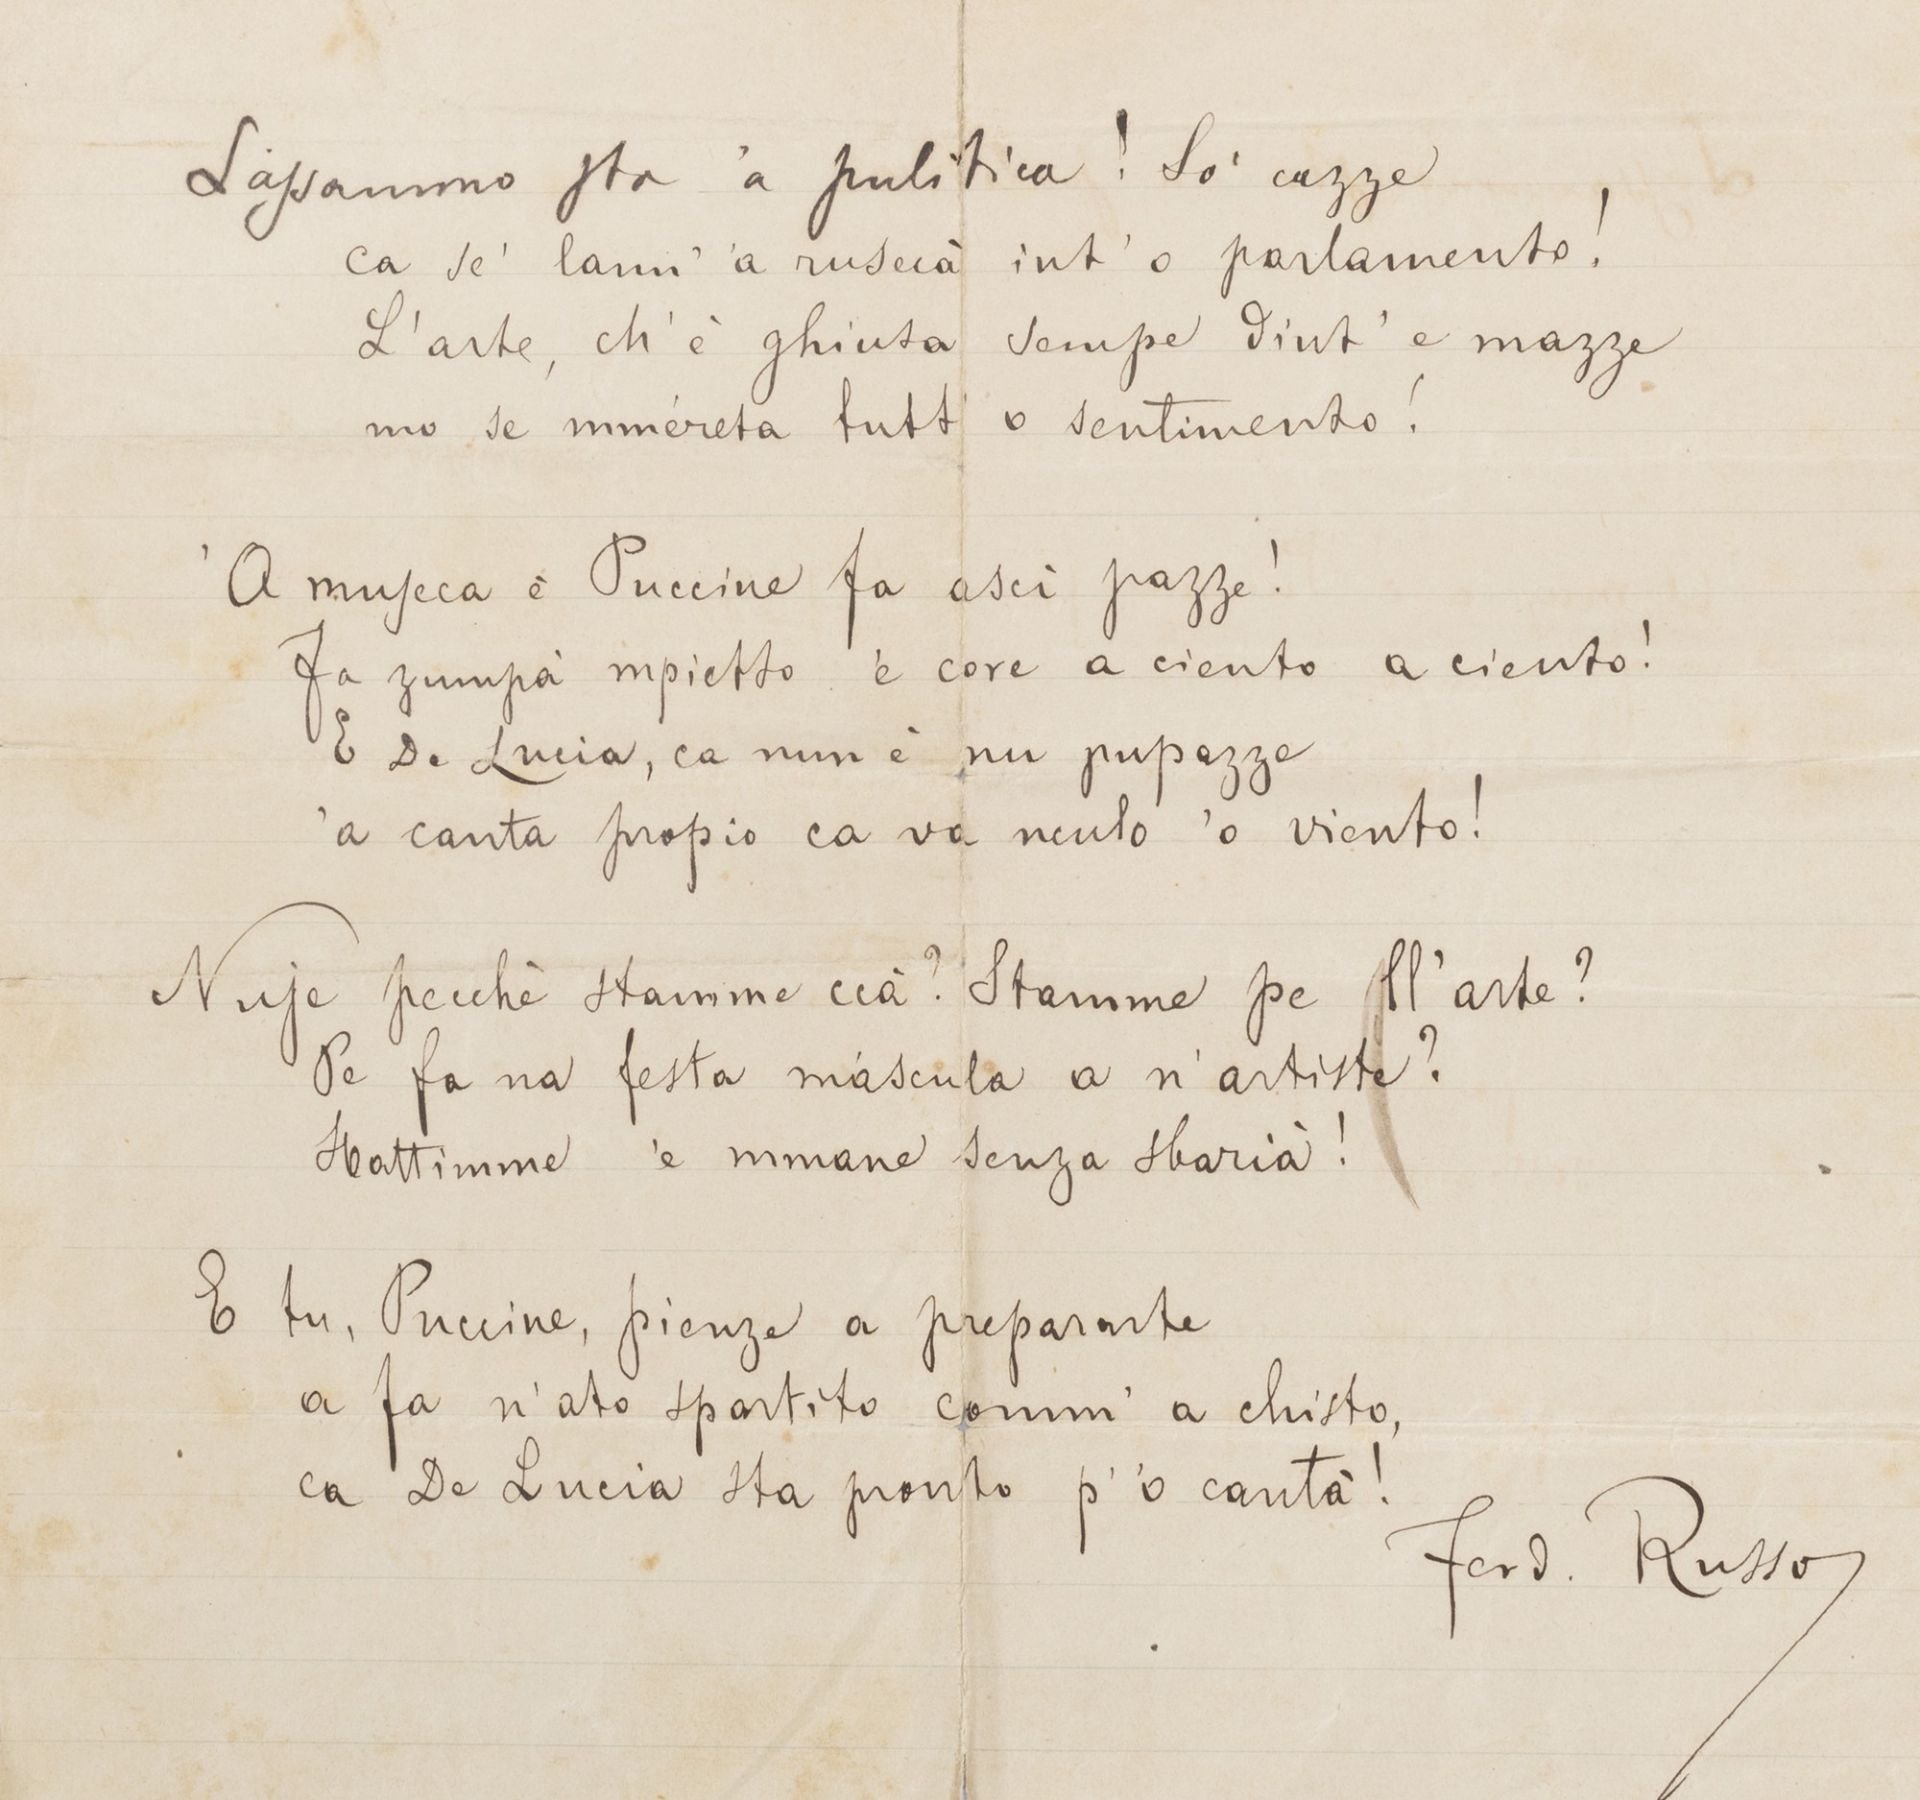 Lassammo sta 'a pulitica! So' cazze
ca se' lann' 'a ruseca' int' 'o parlamento!
L'arte, ch'è ghiuta sempe dint' 'e mazze
mo se mméreta tutt' 'o sentimento!
'A museca 'e Puccine fa asci pazze!
Fa zumpà mpietto 'e core a ciento a ciento!
E De Lucia, ca nun è nu pupazze
'a canta propio ca va nculo 'o viento!
Nuje pecchè stamme ccà? Stamme pe ll'arte?
Pe fa na festa màscula a n'artiste?
Sbattimme 'e mmane senza sbarià!
E tu, Puccine, pienze a prepararte
a fa n'ato spartito comm' a chisto,
ca De Lucia sta pronto p' 'o cantà!
Ferd. Russo